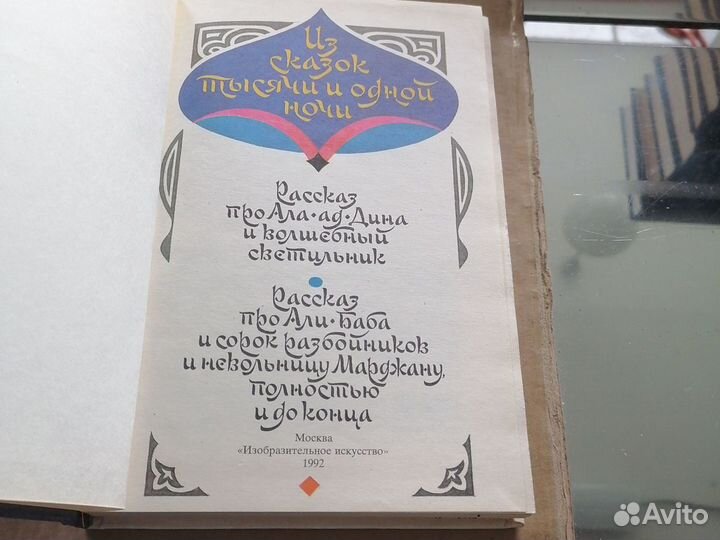 Из
сказок
тысячи и одной
ночи
Рассказ
про Ала·ад·Дина
и волшебный
светильник
Рассказ
про Али·Баба
и сорок разбойников
и невольницу Марджану,
полностью
и до конца
Москва
«Изобразительное искусство»
1992
Avito